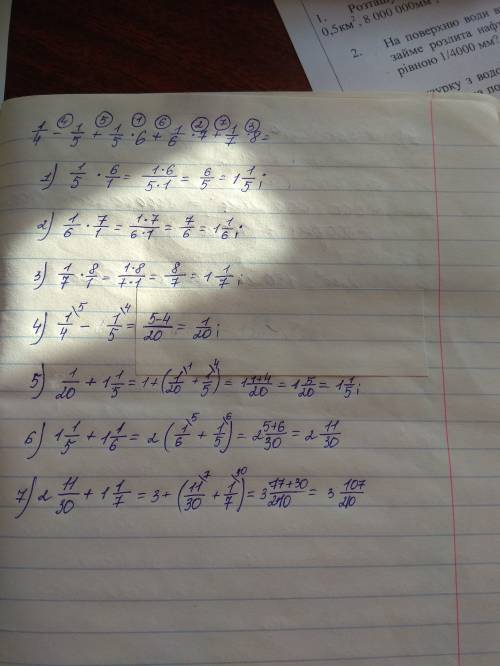 1. Розташу
0,5км², 8 000 000мм²,
2. На поверхню води в
займе розлита наф
рівною 1/4000 мм?
④ ⑤ ① ⑥ ② ⑦ ③
1/4 - 1/5 + 1/5 · 6 + 1/6 · 7 + 1/7 · 8 =
1) 1/5 · 6/1 = 1·6/5·1 = 6/5 = 1 1/5;
2) 1/6 · 7/1 = 1·7/6·1 = 7/6 = 1 1/6;
3) 1/7 · 8/1 = 1·8/7·1 = 8/7 = 1 1/7;
4) 1/4 \5 - 1/5 \4 = 5-4/20 = 1/20;
5) 1/20 + 1 1/5 = 1 + (1/20 \1 + 1/5 \4) = 1 1+4/20 = 1 5/20 = 1 1/5;
6) 1 1/5 + 1 1/6 = 2 (1/6 \5 + 1/5 \6) = 2 5+6/30 = 2 11/30
7) 2 11/30 + 1 1/7 = 3 + (11/30 \7 + 1/7 \30) = 3 77+30/210 = 3 107/210